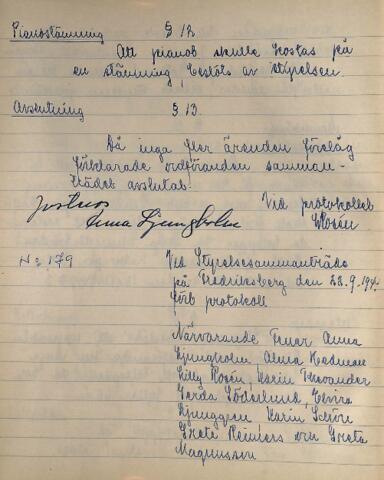 Pianostämning § 12.
Att pianot skulle kostas på
en stämning, beslöts av styrelsen.
Avslutning § 13.
Då inga fler ärenden förelåg
förklarade ordföranden samman-
trädet avslutat.
Justeras Vid protokollet
Anna Ljungholm Rosén
No 179 Vid Styrelsesammanträde
på Fredriksberg den 28.9.194
fört protokoll
Närvarande Fruar Anna
Ljungholm, Alma Hedman
Lilly Rosén, Karin Thevander
Gerda Söderlund, Elvira
Ljunggren Karin
Greta Reimers och Greta
Magnusson